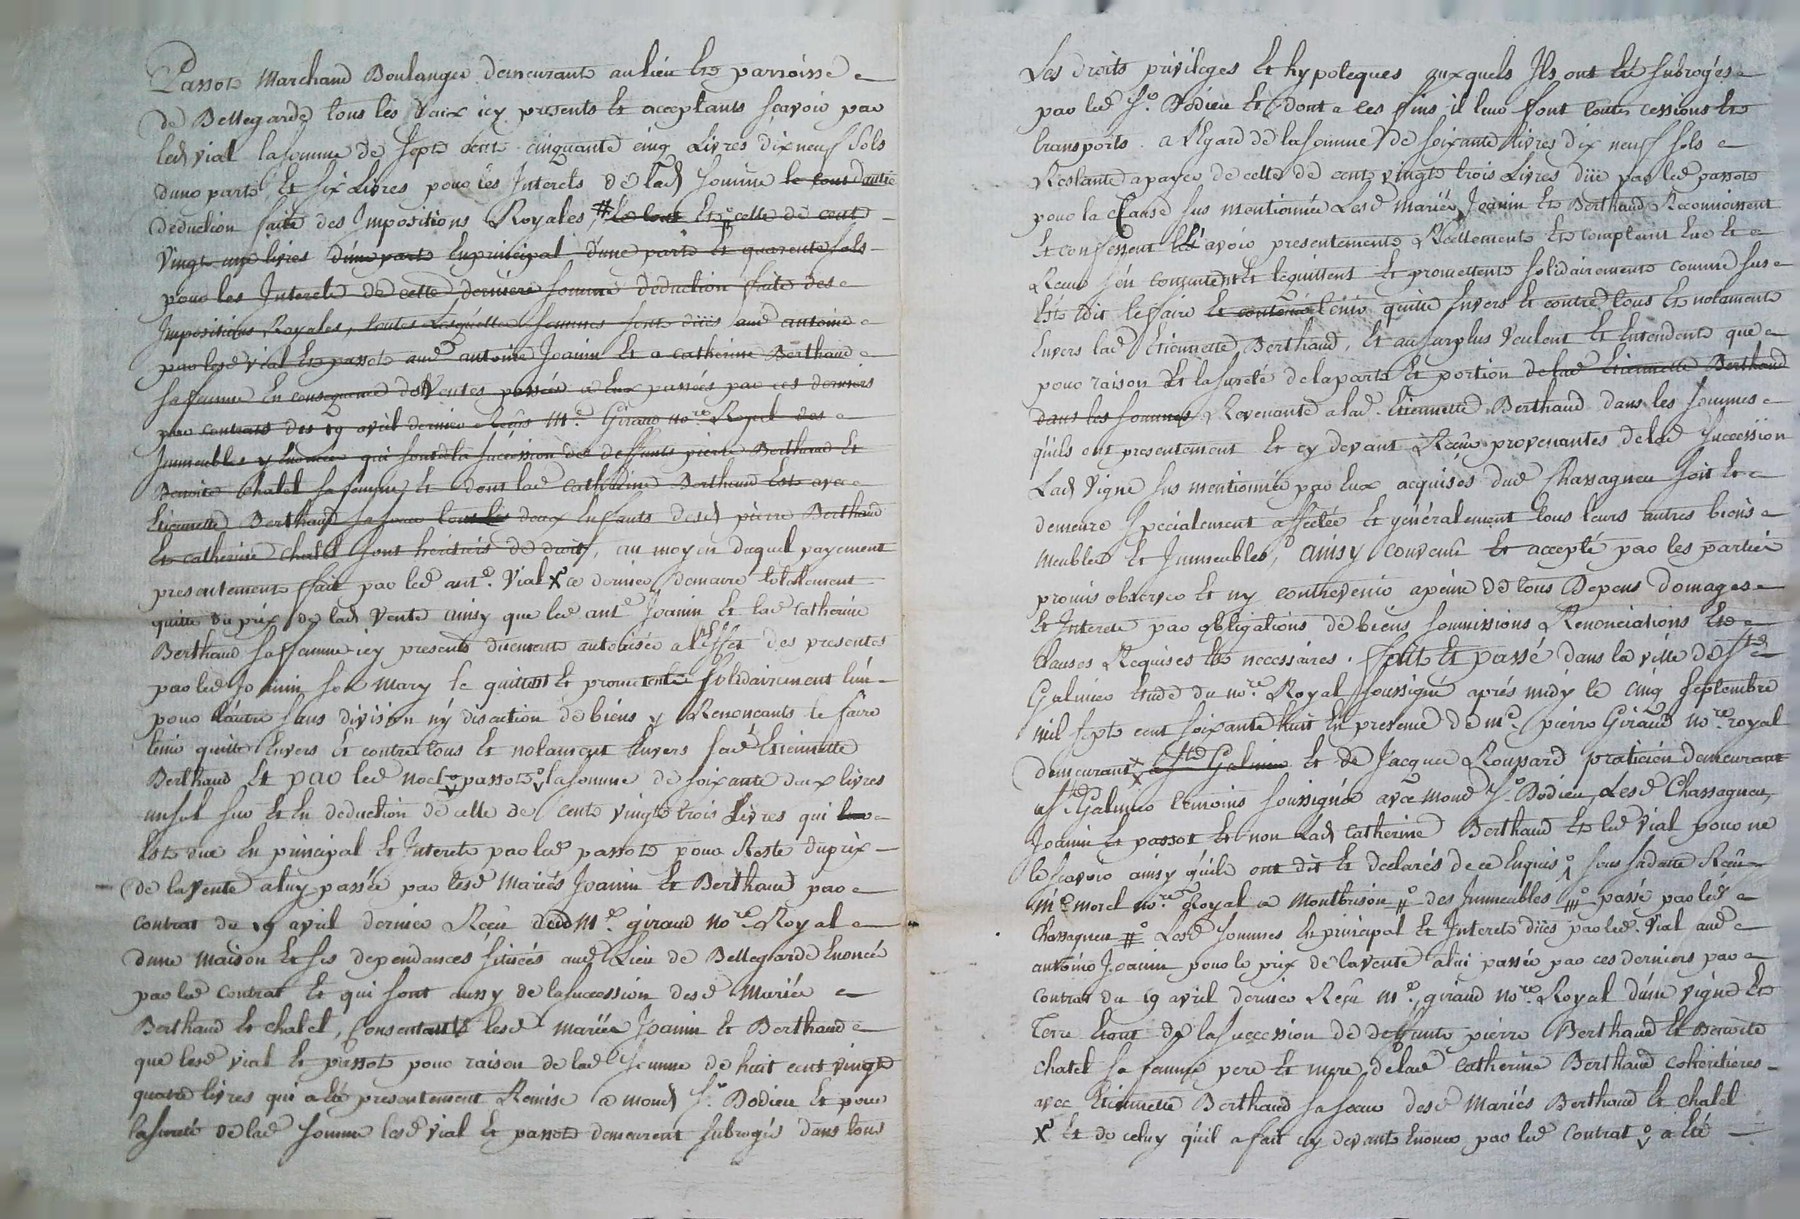 Passot Marchand Boulanger demeurants au lieu Et parroisse
de Bellegarde tous les Deux icy presents Et acceptants scavoir par
led vial la somme de sept cent cinquante cinq Livres dix neuf sols
d'une part Et six Livres pour les Interets de lad somme le tout d'autre
deduction faite des Impositions Royales # Le tout Et celle de cent
vingt une livres d'une part En principal d'une part Et quarente sols
pour les Interets de cette derniere somme deduction faite des
Impositions Royales, toutes Lesquelles sommes sont dües aud antoine
par lesd vial Et passot aud antoine Joanin Et a catherine Berthaud
sa femme En consequence des Ventes passées a Eux passées par ces derniers
par contrats des 19 avril dernier Reçûs Me Giraud nore Royal des
Immeubles y Enoncés qui sont de la succession des deffunts pierre Berthaud Et
Benoite Chatel sa femme Et dont lad Catherine Berthaud Est avec
Etiennette Berthaud sa soeur tous les deux Enfants desd pierre Berthaud
Et catherine chatel sont heritiers de droit, au moyen duquel payement
presentement fait par led ant. Vial X ce dernier demeure totalement
quitte du prix de lad Vente ainsy que led ant Joanin Et lad Catherine
Berthaud sa femme icy presente düement autorisée a l'effet des presentes
par led Joanin son Mary le quittent Et promettent solidairement l'un
pour l'autre sans division ny discution de biens y Renoncants le faire
tenir quitte Envers Et contre tous Et notament Envers lad Etiennette
Berthaud Et par led noel passot la somme de soixante deux livres
un sol sur Et En deduction de celle de Cent vingt trois Livres qui leur
Est due En principal Et Interets par led passot pour Reste du prix
de la vente a luy passée par lesd Mariés Joanin Et Berthaud par
Contrat du 19 avril dernier Reçû dud Me giraud nore Royal
d'une Maison Et ses dependances sitüées aud Lieu de Bellegarde Enoncée
par led Contrat Et qui sont aussy de la succession desd Mariés
Berthaud Et chatel, Consentants lesd Mariés Joanin Et Berthaud
que lesd vial Et passot pour raison de lad somme de huit cent vingt
quatre livres qui a Eté presentement Remise a mond Sr Dodieu Et pour
la sureté de lad somme lesd vial Et passot demeurent subrogés dans tous
Les droits privileges Et hypoteques auxquels Ils ont Eté subrogés
par led Sr Dodieu Et dont a ces fins il leur font toutes cessions Et
transports. a l'Egard de la somme de soixante Livres dix neuf sols
Restante a payer de celle de cent vingt trois Livres düe par led passot
pour la Clause sus mentionnée Lesd Mariés Joanin Et Berthaud Reconnoissent
Et confessent l'avoir presentement Réellement Et comptant Eue Et
Receue s'en contentent Et le quittent Et promettent solidairement comme sus
Est dit le faire Et tenir quitte Envers Et contre tous Et notament
Envers lad Etiennette Berthaud, Et au surplus Veulent Et Entendent que
pour raison Et la sureté de la part Et portion de lad Etiennette Berthaud
dans les sommes Revenante a lad. Etiennette Berthaud dans les sommes
qu'ils ont presentement Et cy devant Reçûe provenantes de lad succession
Lad Vigne sus mentionnée par Eux acquises dud Chassagneu soit Et
demeure specialement affectée Et généralement tous leurs autres biens
Meubles Et Immeubles, ainsy convenu Et accepté par les parties
promis observer Et ny contrevenir a peine de tous Depens domages
Et Interets par obligations de biens soumissions Renonciations Et
clauses Requises Et necessaires. fait Et passé dans la ville de St
Galmier Etude du nore Royal soussigné aprés midy le cinq septembre
mil sept cent soixante huit En presence de Me pierre Giraud nore royal
demeurant X a St Galmier Et de Jacques Roussard praticien demeurant
a St Galmier temoins soussignés avec mond Sr Dodieu Lesd Chassagneu
Joanin Et passot Et non Lad Catherine Berthaud Et led Vial pour ne
le scavoir ainsy qu'ils ont dit Et declarés de ce Enquis sous sa datte Reçû
Me morel nore Royal a Montbrison # des Immeubles # passé par led
Chassagneu # Lesd sommes En principal Et Interets düës par led. Vial aud
antoine Joanin pour le prix de la vente a lui passée par ces derniers par
Contrat du 19 avril dernier Reçû Me giraud nore Royal d'une vigne Et
Terre Etant de la succession de deffunts pierre Berthaud Et Benoite
chatel sa femme pere Et mere de lad Catherine Berthaud cohéritieres
avec Etiennette Berthaud sa soeur desd Mariés Berthaud Et chatel
X Et de celuy qu'il a fait cy devant Enoncé par led Contrat a Eté